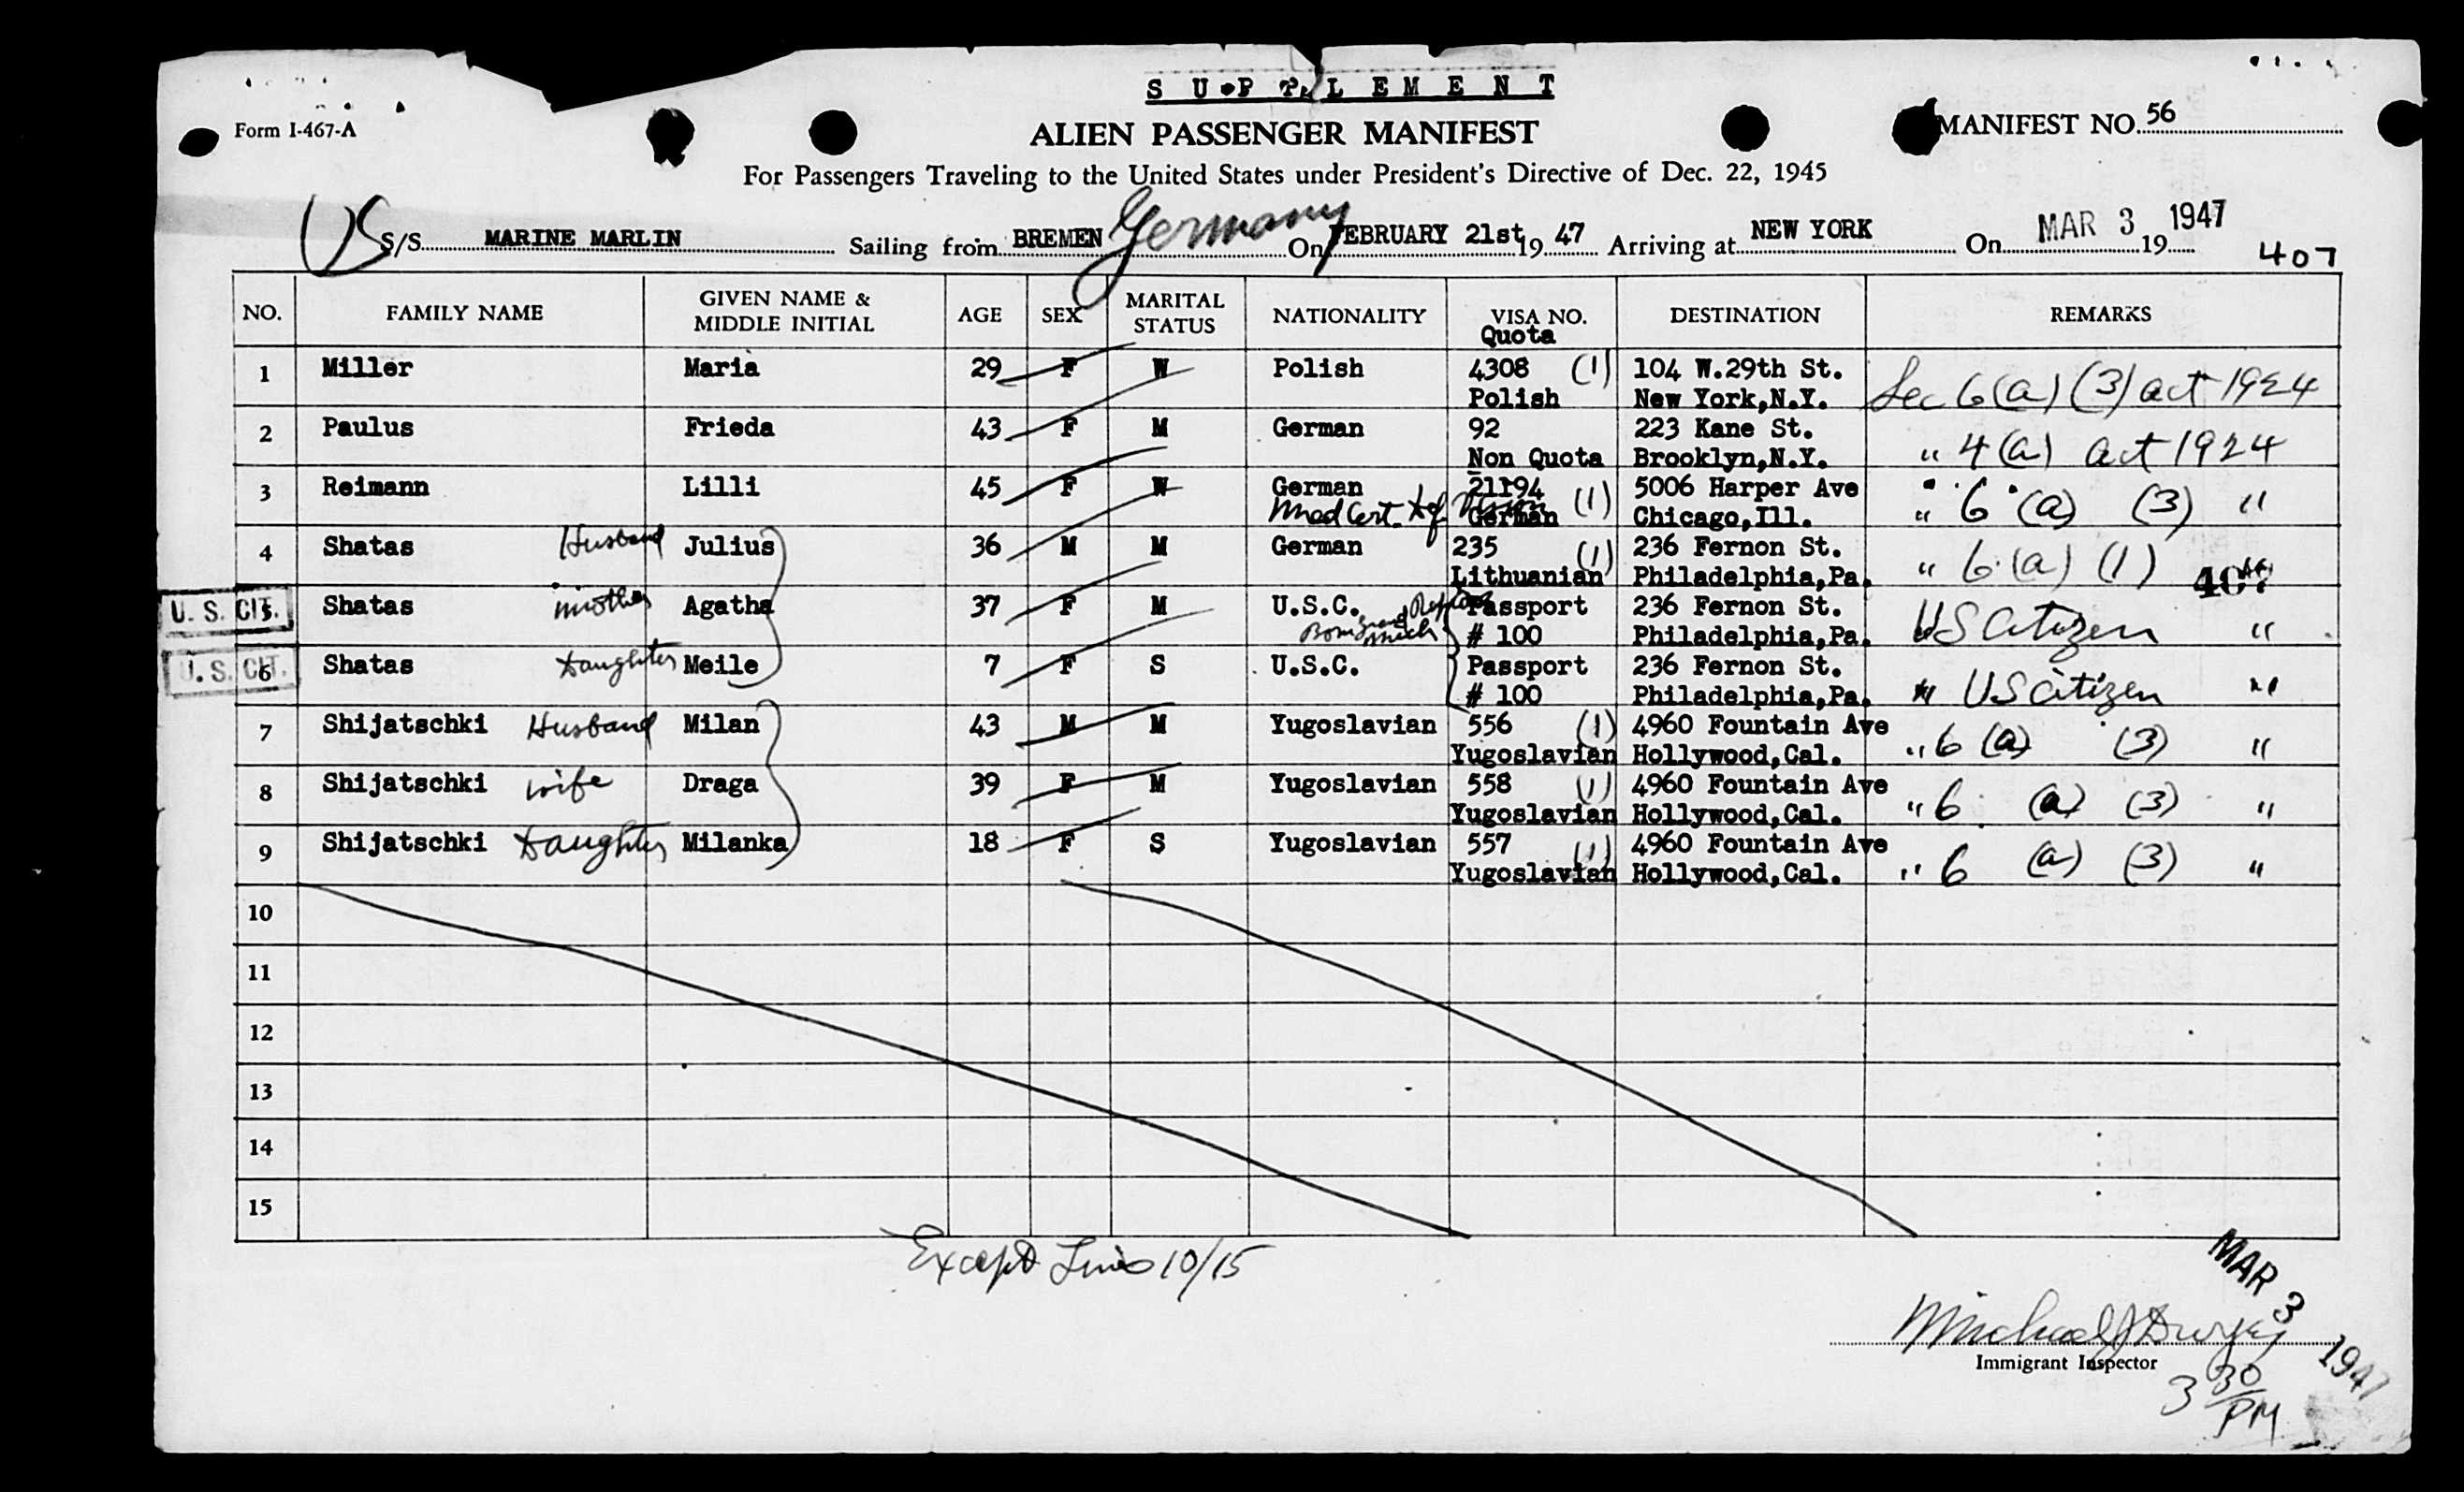 SUPPLEMENT
Form I-467-A
ALIEN PASSENGER MANIFEST
MANIFEST NO. 56
For Passengers Traveling to the United States under President's Directive of Dec. 22, 1945
US S/S MARINE MARLIN Sailing from BREMEN Germany On FEBRUARY 21st 19 47 Arriving at NEW YORK On MAR 3 1947 19
407
NO. FAMILY NAME GIVEN NAME & MIDDLE INITIAL AGE SEX MARITAL STATUS NATIONALITY VISA NO. Quota DESTINATION REMARKS
1 Miller Maria 29 F W Polish 4308 (1) 104 W.29th St. Sec 6 (a) (3) act 1924
Polish New York,N.Y.
2 Paulus Frieda 43 F M German 92 223 Kane St. " 4 (a) act 1924
Non Quota Brooklyn,N.Y.
3 Reimann Lilli 45 F W German 21194 (1) 5006 Harper Ave " 6 (a) (3) "
Med Cert. German Chicago,Ill.
4 Shatas Husband Julius 36 M M German 235 (1) 236 Fernon St. " 6 (a) (1) 407
Lithuanian Philadelphia,Pa.
U. S. CIT. 5 Shatas mother Agatha 37 F M U.S.C. Passport 236 Fernon St. US Citizen "
Born Mich # 100 Philadelphia,Pa.
U. S. CIT. 6 Shatas Daughter Meile 7 F S U.S.C. Passport 236 Fernon St. " US citizen "
# 100 Philadelphia,Pa.
7 Shijatschki Husband Milan 43 M M Yugoslavian 556 (1) 4960 Fountain Ave " 6 (a) (3) "
Yugoslavian Hollywood,Cal.
8 Shijatschki wife Draga 39 F M Yugoslavian 558 (1) 4960 Fountain Ave " 6 (a) (3) "
Yugoslavian Hollywood,Cal.
9 Shijatschki Daughter Milanka 18 F S Yugoslavian 557 (1) 4960 Fountain Ave " 6 (a) (3) "
Yugoslavian Hollywood,Cal.
10
11
12
13
14
15
Except Lines 10/15
MAR 3 1947
Michael J
Immigrant Inspector
3 30 PM